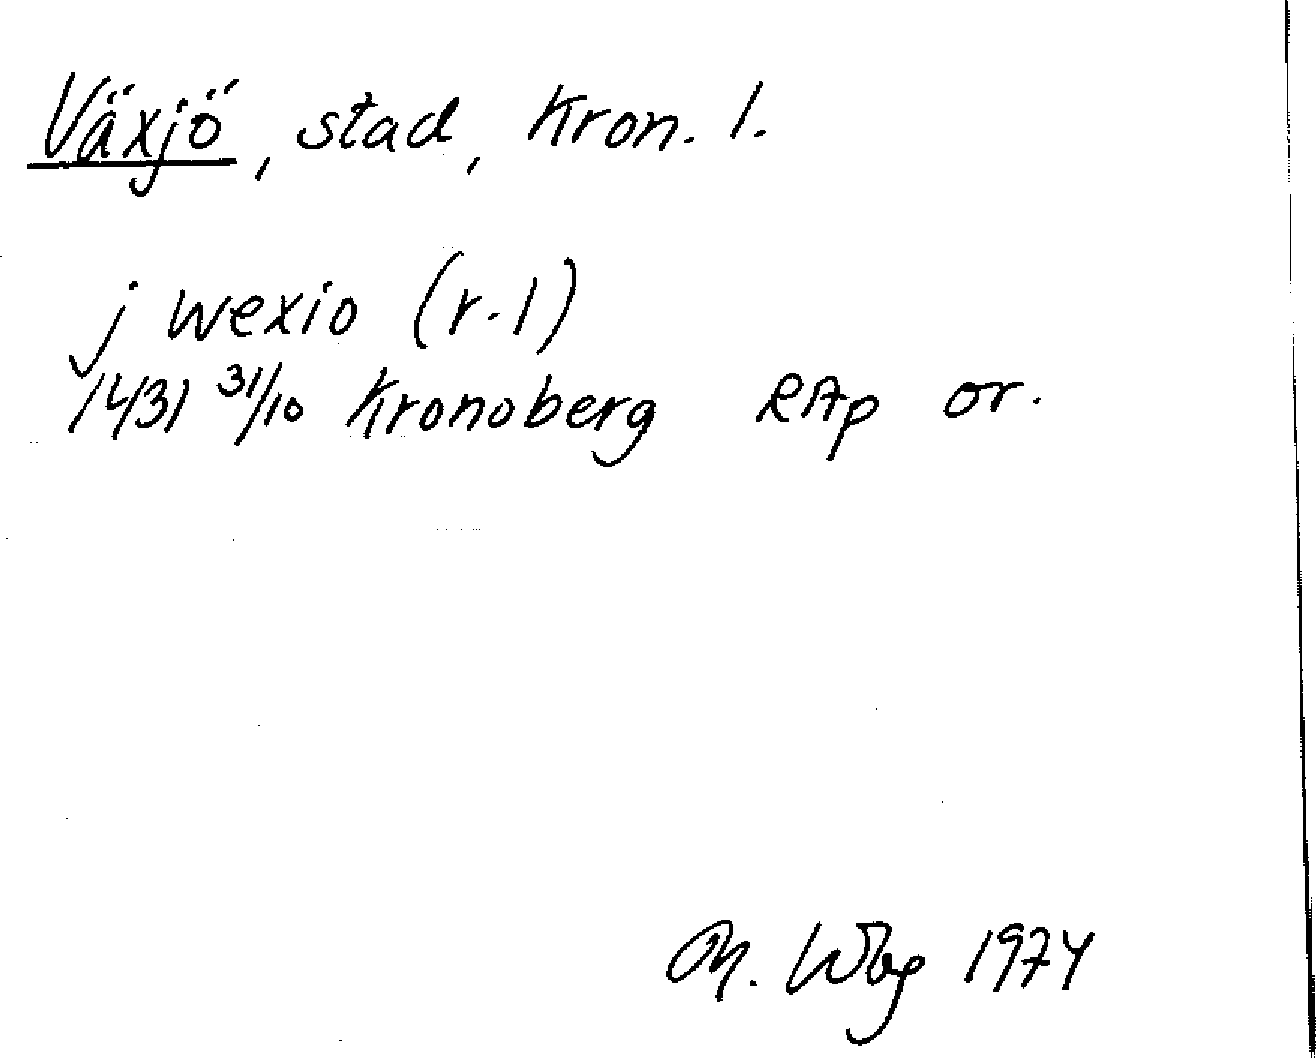 Växjö, stad, Kron. l.
j wexio (r. 1)
1431 31/10 Kronoberg RAp or.
M. Wbg 1974